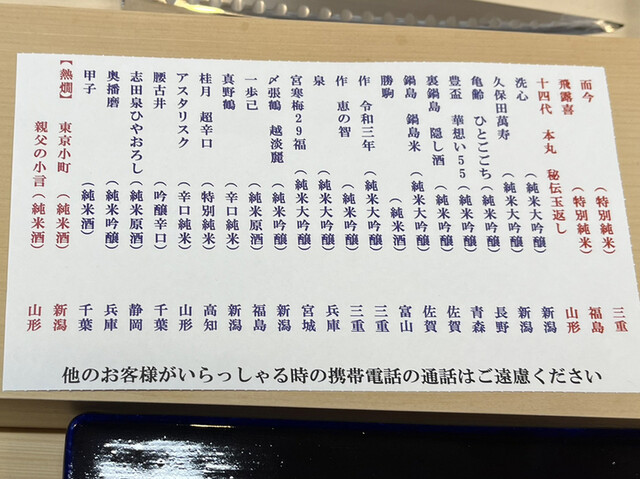 而今 (特別純米) 三重
飛露喜 (特別純米) 福島
十四代 本丸 秘伝玉返し 山形
洗心 (純米大吟醸) 新潟
久保田萬寿 (純米大吟醸) 新潟
亀齢 ひとごこち (純米吟醸) 長野
豊盃 華想い55 (純米吟醸) 青森
裏鍋島 隠し酒 (純米吟醸) 佐賀
鍋島 鍋島米 (純米大吟醸) 佐賀
勝駒 (純米酒) 富山
作 令和三年 (純米大吟醸) 三重
作 恵の智 (純米吟醸) 三重
泉 (純米大吟醸) 兵庫
宮寒梅29福 (純米大吟醸) 宮城
〆張鶴 越淡麗 (純米吟醸) 新潟
一歩己 (純米原酒) 福島
真野鶴 (辛口純米) 新潟
桂月 超辛口 (特別純米) 高知
アスタリスク (辛口純米) 山形
腰古井 (吟醸辛口) 千葉
志田泉ひやおろし (純米原酒) 静岡
奥播磨 (純米吟醸) 兵庫
甲子 (純米酒) 千葉
【熱燗】 東京小町 (純米酒) 新潟
親父の小言 (純米酒) 山形
他のお客様がいらっしゃる時の携帯電話の通話はご遠慮ください